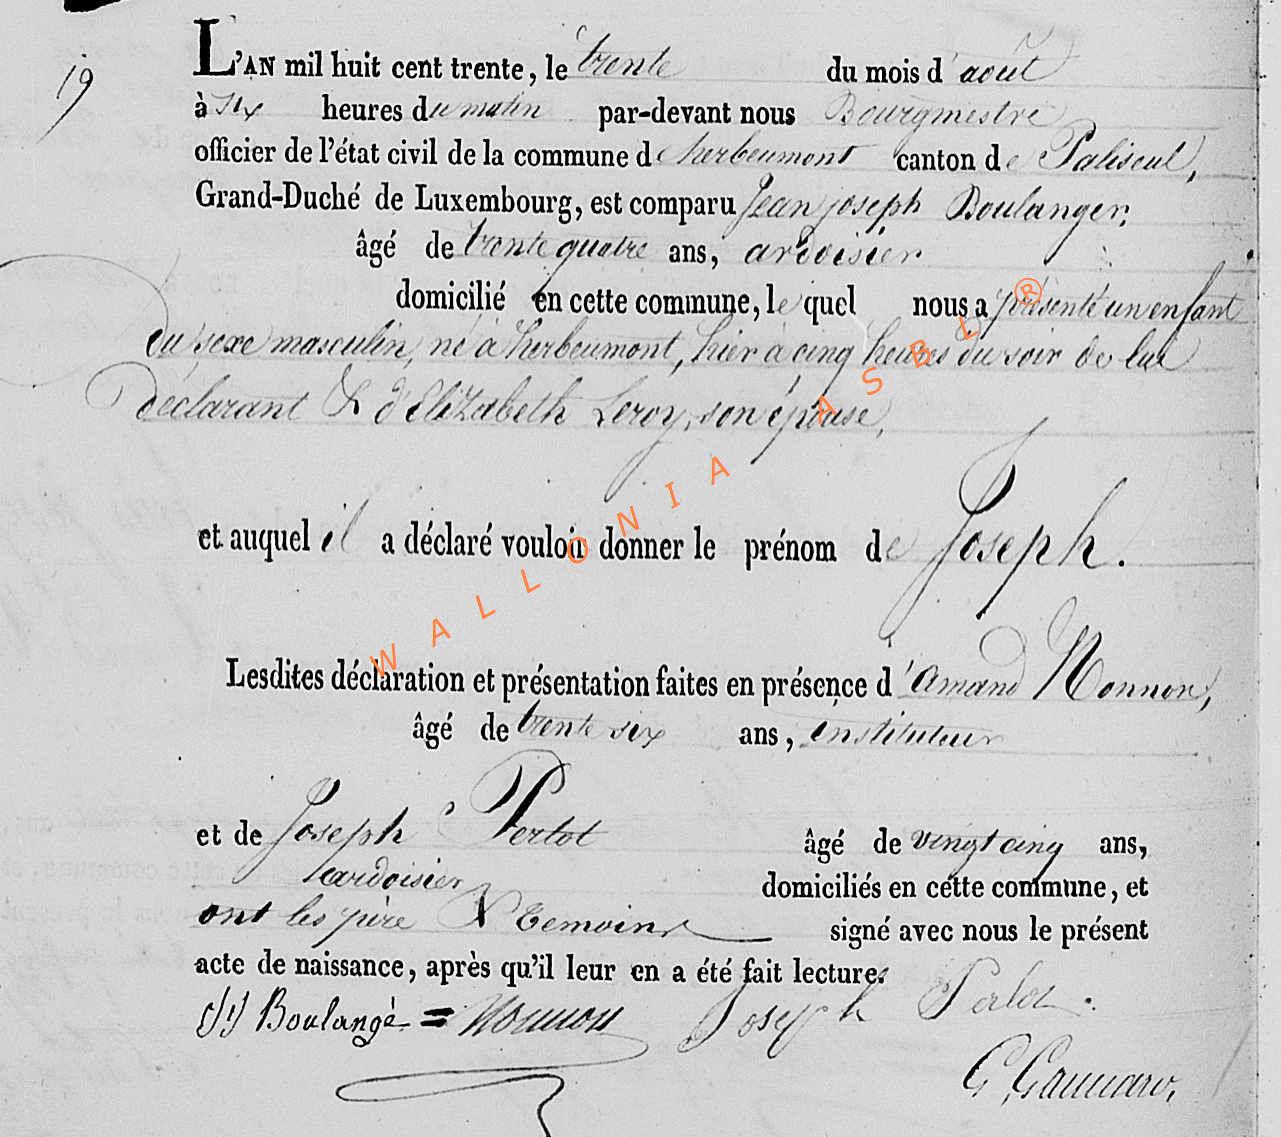 19
L'AN mil huit cent trente, le trente du mois d'août
à six heures du matin par-devant nous Bourgmestre
officier de l'état civil de la commune de herbeumont canton de Paliseul,
Grand-Duché de Luxembourg, est comparu Jean joseph Boulanger,
âgé de trente quatre ans, ardoisier
domicilié en cette commune, le quel nous a présenté un enfant
du sexe masculin, né à herbeumont, hier à cinq heures du soir de lui
déclarant & d'Elizabeth Leroy, son épouse,
et auquel il a déclaré vouloir donner le prénom de Joseph.
Lesdites déclaration et présentation faites en présence d'Amand Nonnon,
âgé de trente six ans, instituteur
et de Joseph Perlot âgé de vingt cinq ans,
ardoisier domiciliés en cette commune, et
ont les père & temoins signé avec nous le présent
acte de naissance, après qu'il leur en a été fait lecture.
JJ Boulangé = Nonnon Joseph Perlot.
WALLONIA ASBL ®